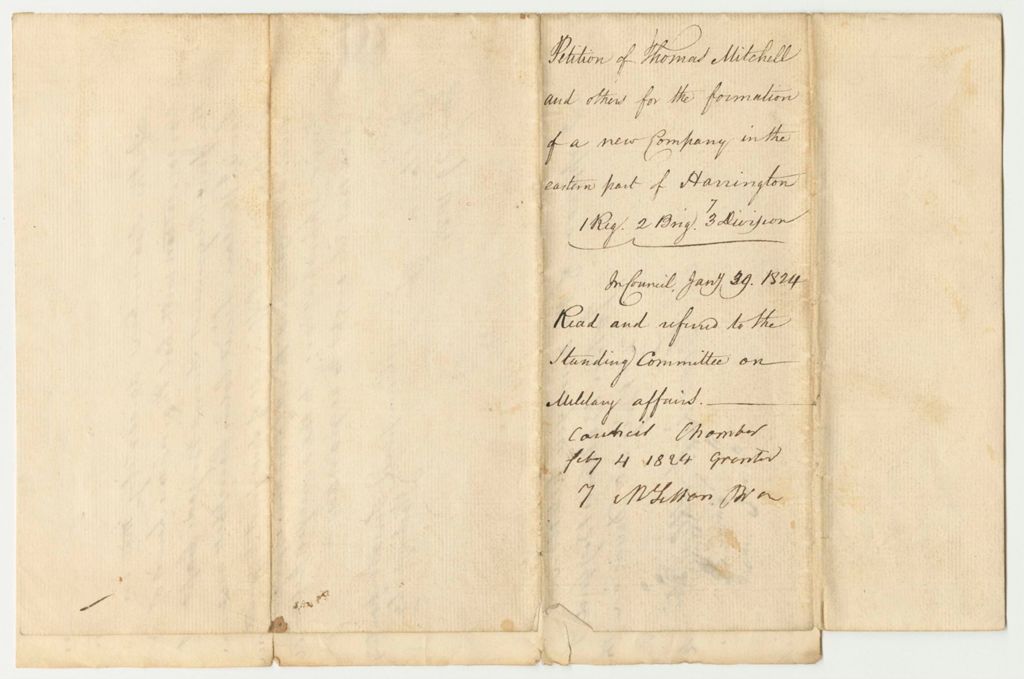 Petition of Thomas Mitchell
and others for the formation
of a new Company in the
eastern part of Harrington
7
1 Reg. 2 Brig. 3 Division
In Council, Jany 29. 1824
Read and referred to the
Standing Committee on
Military affairs.
Council Chamber
feby 4 1824 Granted
7